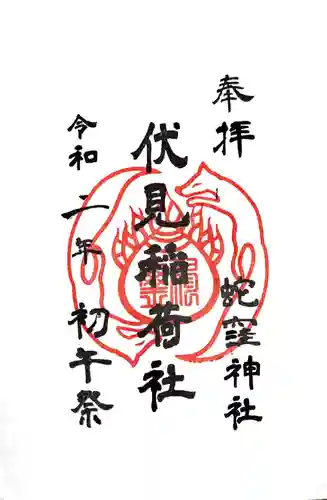 奉拝
蛇窪神社
伏見稲荷社
令和二年
初午祭